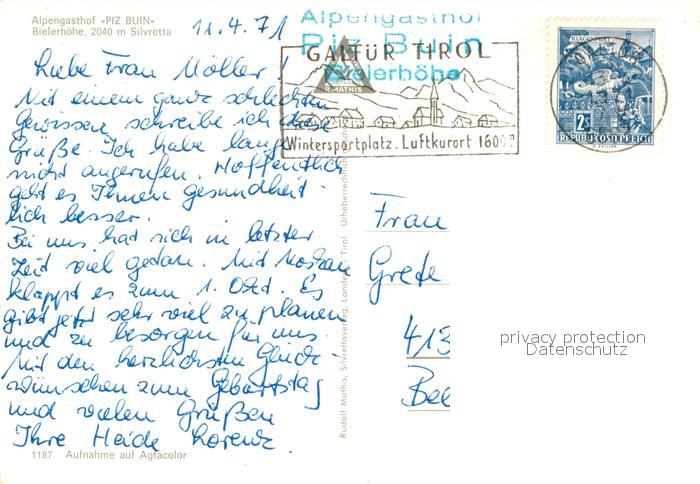 Alpengasthof »PIZ BUIN«
Bielerhöhe, 2040 m Silvretta
11.4.71
Liebe Frau Möller!
Mit einem ganz schlechten
Gewissen schreibe ich diese
Grüße. Ich habe lange
nicht angerufen. Hoffentlich
geht es Ihnen gesundheit-
lich besser.
Bei uns hat sich in letzter
Zeit viel getan. Mit
klappt es zum 1. Okt. Es
gibt jetzt sehr viel zu planen
und zu besorgen für uns.
Mit den herzlichsten Glück-
wünschen zum Geburtstag
und vielen Grüßen
Ihre Heide Lorenz.
1187 Aufnahme auf Agfacolor
Rudolf Mathis, Silvrettaverlag, Landeck, Tirol. Urheberrechtlich
Alpengasthof
Piz Buin
Bielerhöhe
R. MATHIS
GALTÜR TIROL
Wintersportplatz. Luftkurort 1600 m
KLAGENFURT
2S
REPUBLIK ÖSTERREICH
Frau
Grete
413
privacy protection
Datenschutz